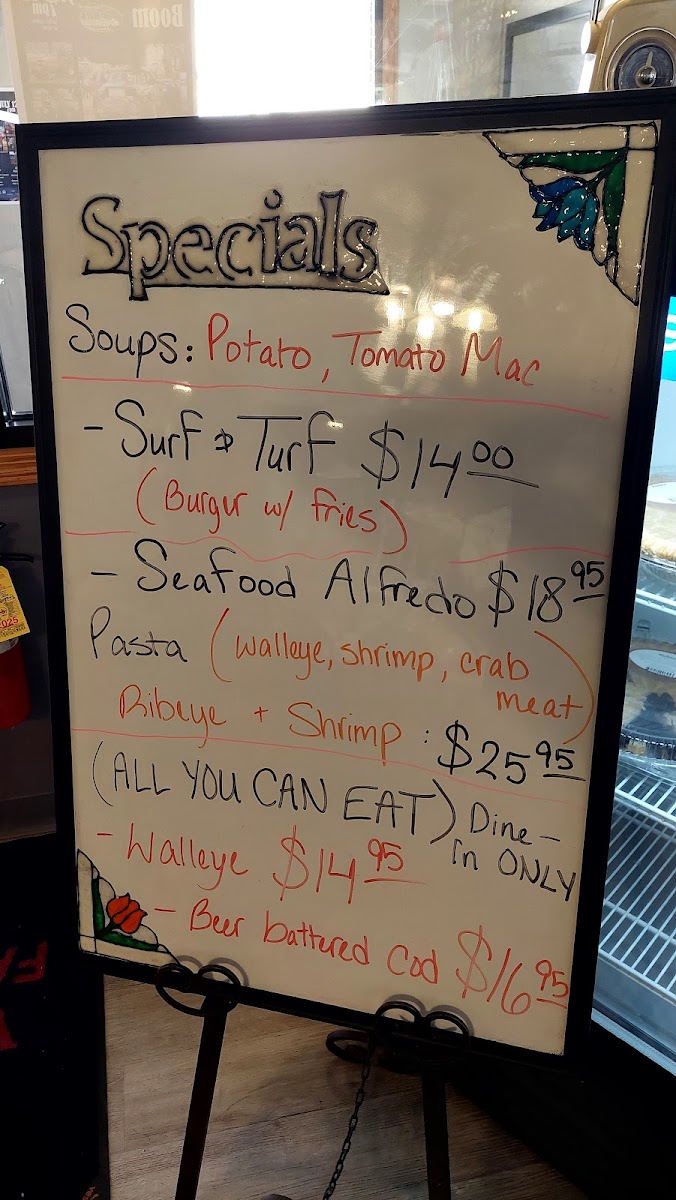 Boom
Specials
Soups: Potato, Tomato Mac
- Surf & Turf $14.00
(Burger w/ fries)
- Seafood Alfredo $18.95
Pasta (walleye, shrimp, crab
meat)
Ribeye + Shrimp: $25.95
(ALL YOU CAN EAT) Dine-
in ONLY
- Walleye $14.95
- Beer battered Cod $16.95